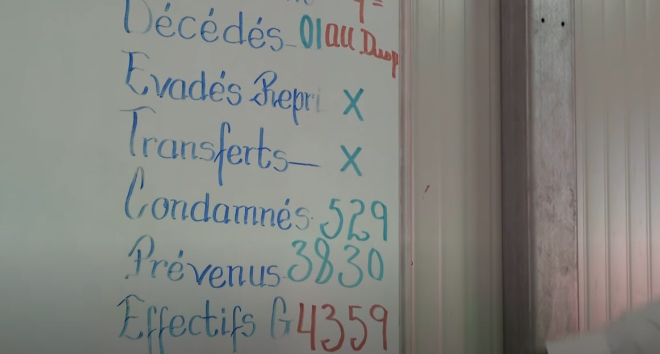 Décédés - 01 au Disp
Evadés Repri X
Transferts — X
Condamnés 529
Prévenus 3830
Effectifs G 4359